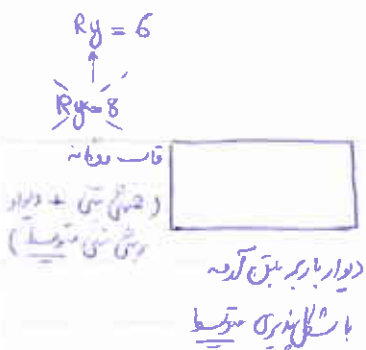 Ry = 6
Ry = 8
قاب دوگانه
( خمشی بتنی + دیوار
برشی بتنی متوسط )
دیوار باربر بتن آرمه
با شکل‌پذیری متوسط